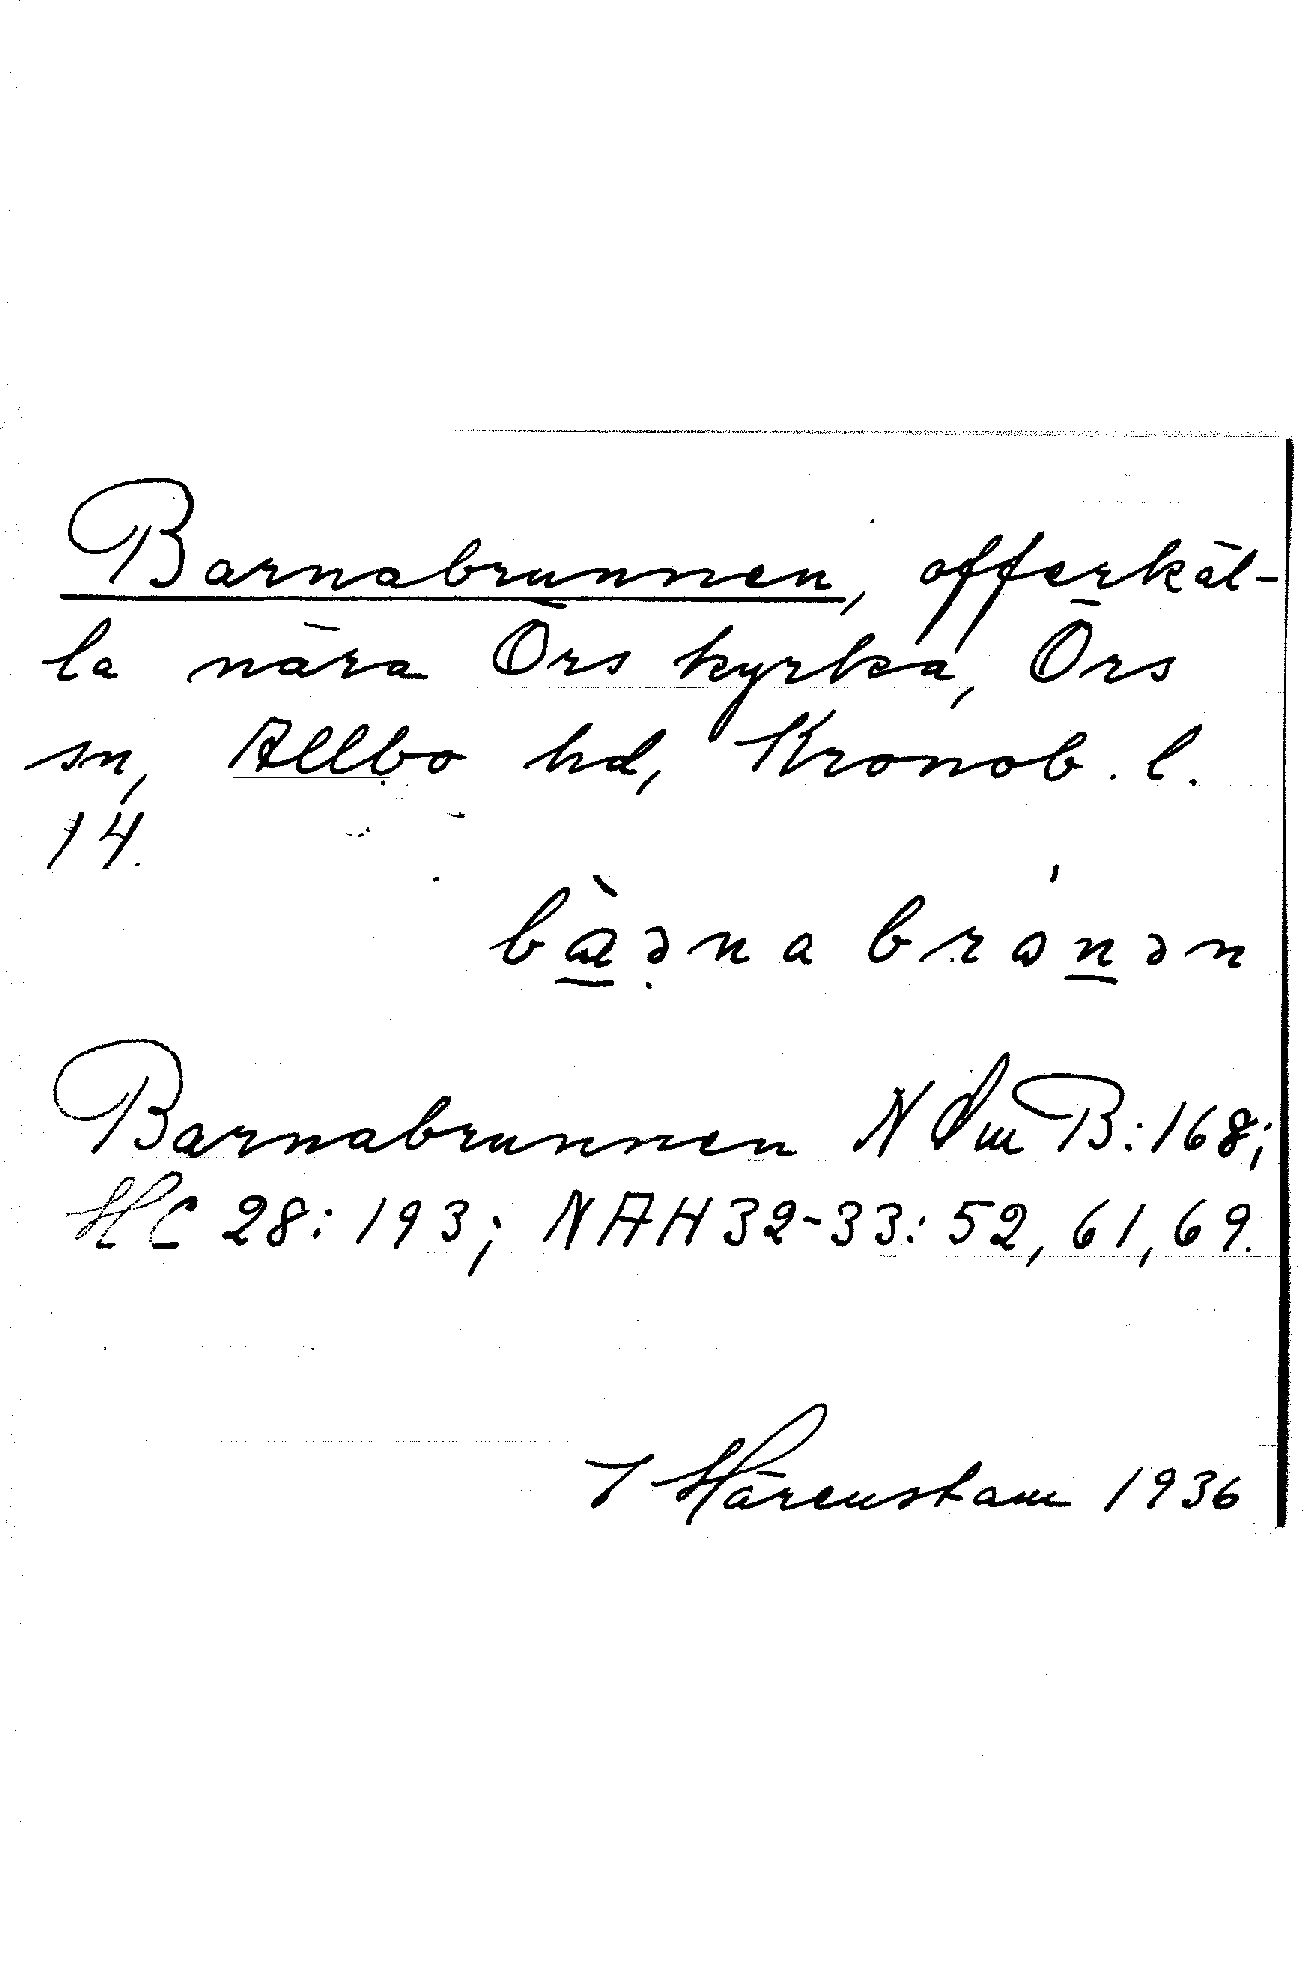 Barnabrunnen, offerkäl-
la nära Örs kyrka, Örs
sn, Allbo hd, Kronob. l.
14.
Barnabrunnen N Sm B:168;
HC 28:193; NAH 32-33:52, 61, 69.
Härenstam 1936